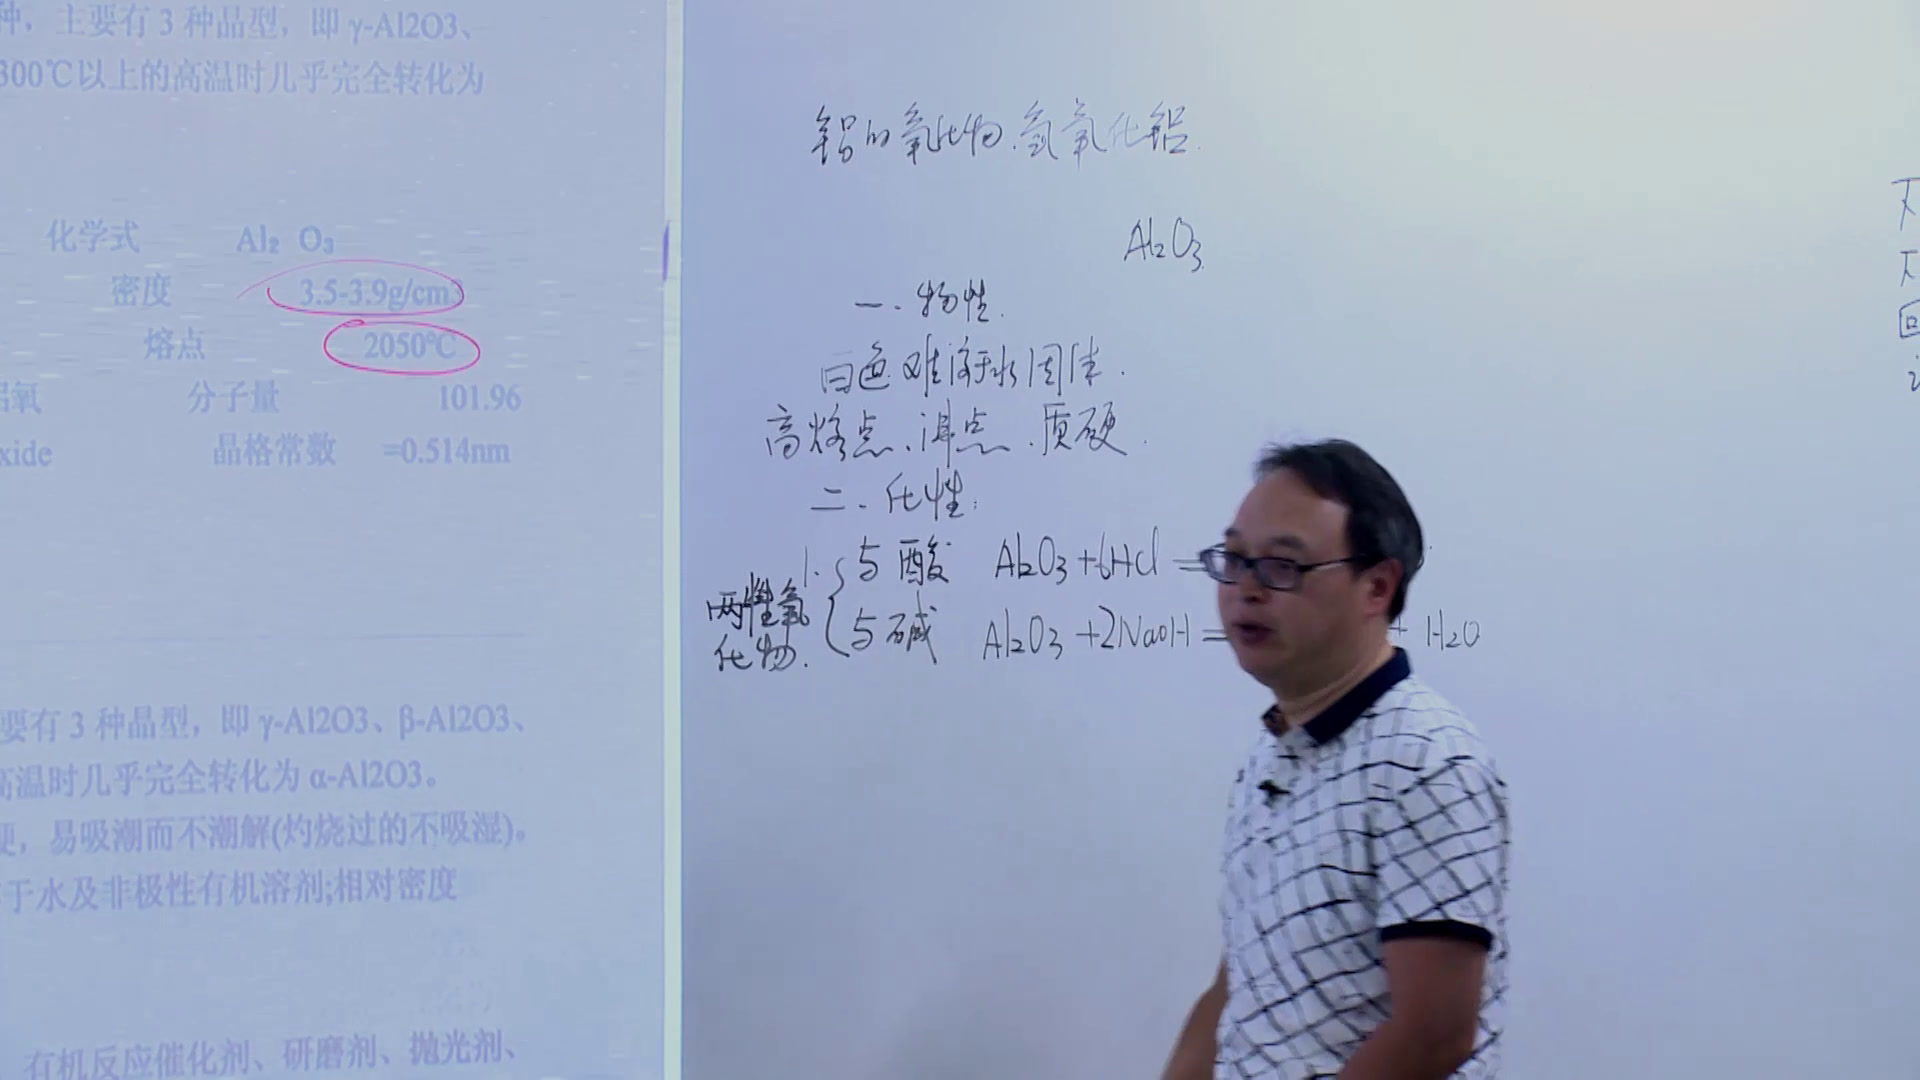 种，主要有 3 种晶型，即 γ-Al2O3、
300℃以上的高温时几乎完全转化为
化学式 Al₂ O₃
密度 3.5-3.9g/cm3
熔点 2050℃
铝氧 分子量 101.96
xide 晶格常数 =0.514nm
要有 3 种晶型，即 γ-Al2O3、β-Al2O3、
高温时几乎完全转化为 α-Al2O3。
硬，易吸潮而不潮解(灼烧过的不吸湿)。
于水及非极性有机溶剂;相对密度
有机反应催化剂、研磨剂、抛光剂、
铝的氧化物.氢氧化铝.
Al₂O₃
一.物性.
白色难溶于水固体.
高熔点.沸点.质硬.
二.化性:
1. 两性氧化物.
与酸 Al₂O₃+6HCl =
与碱 Al₂O₃+2NaOH= + H₂O